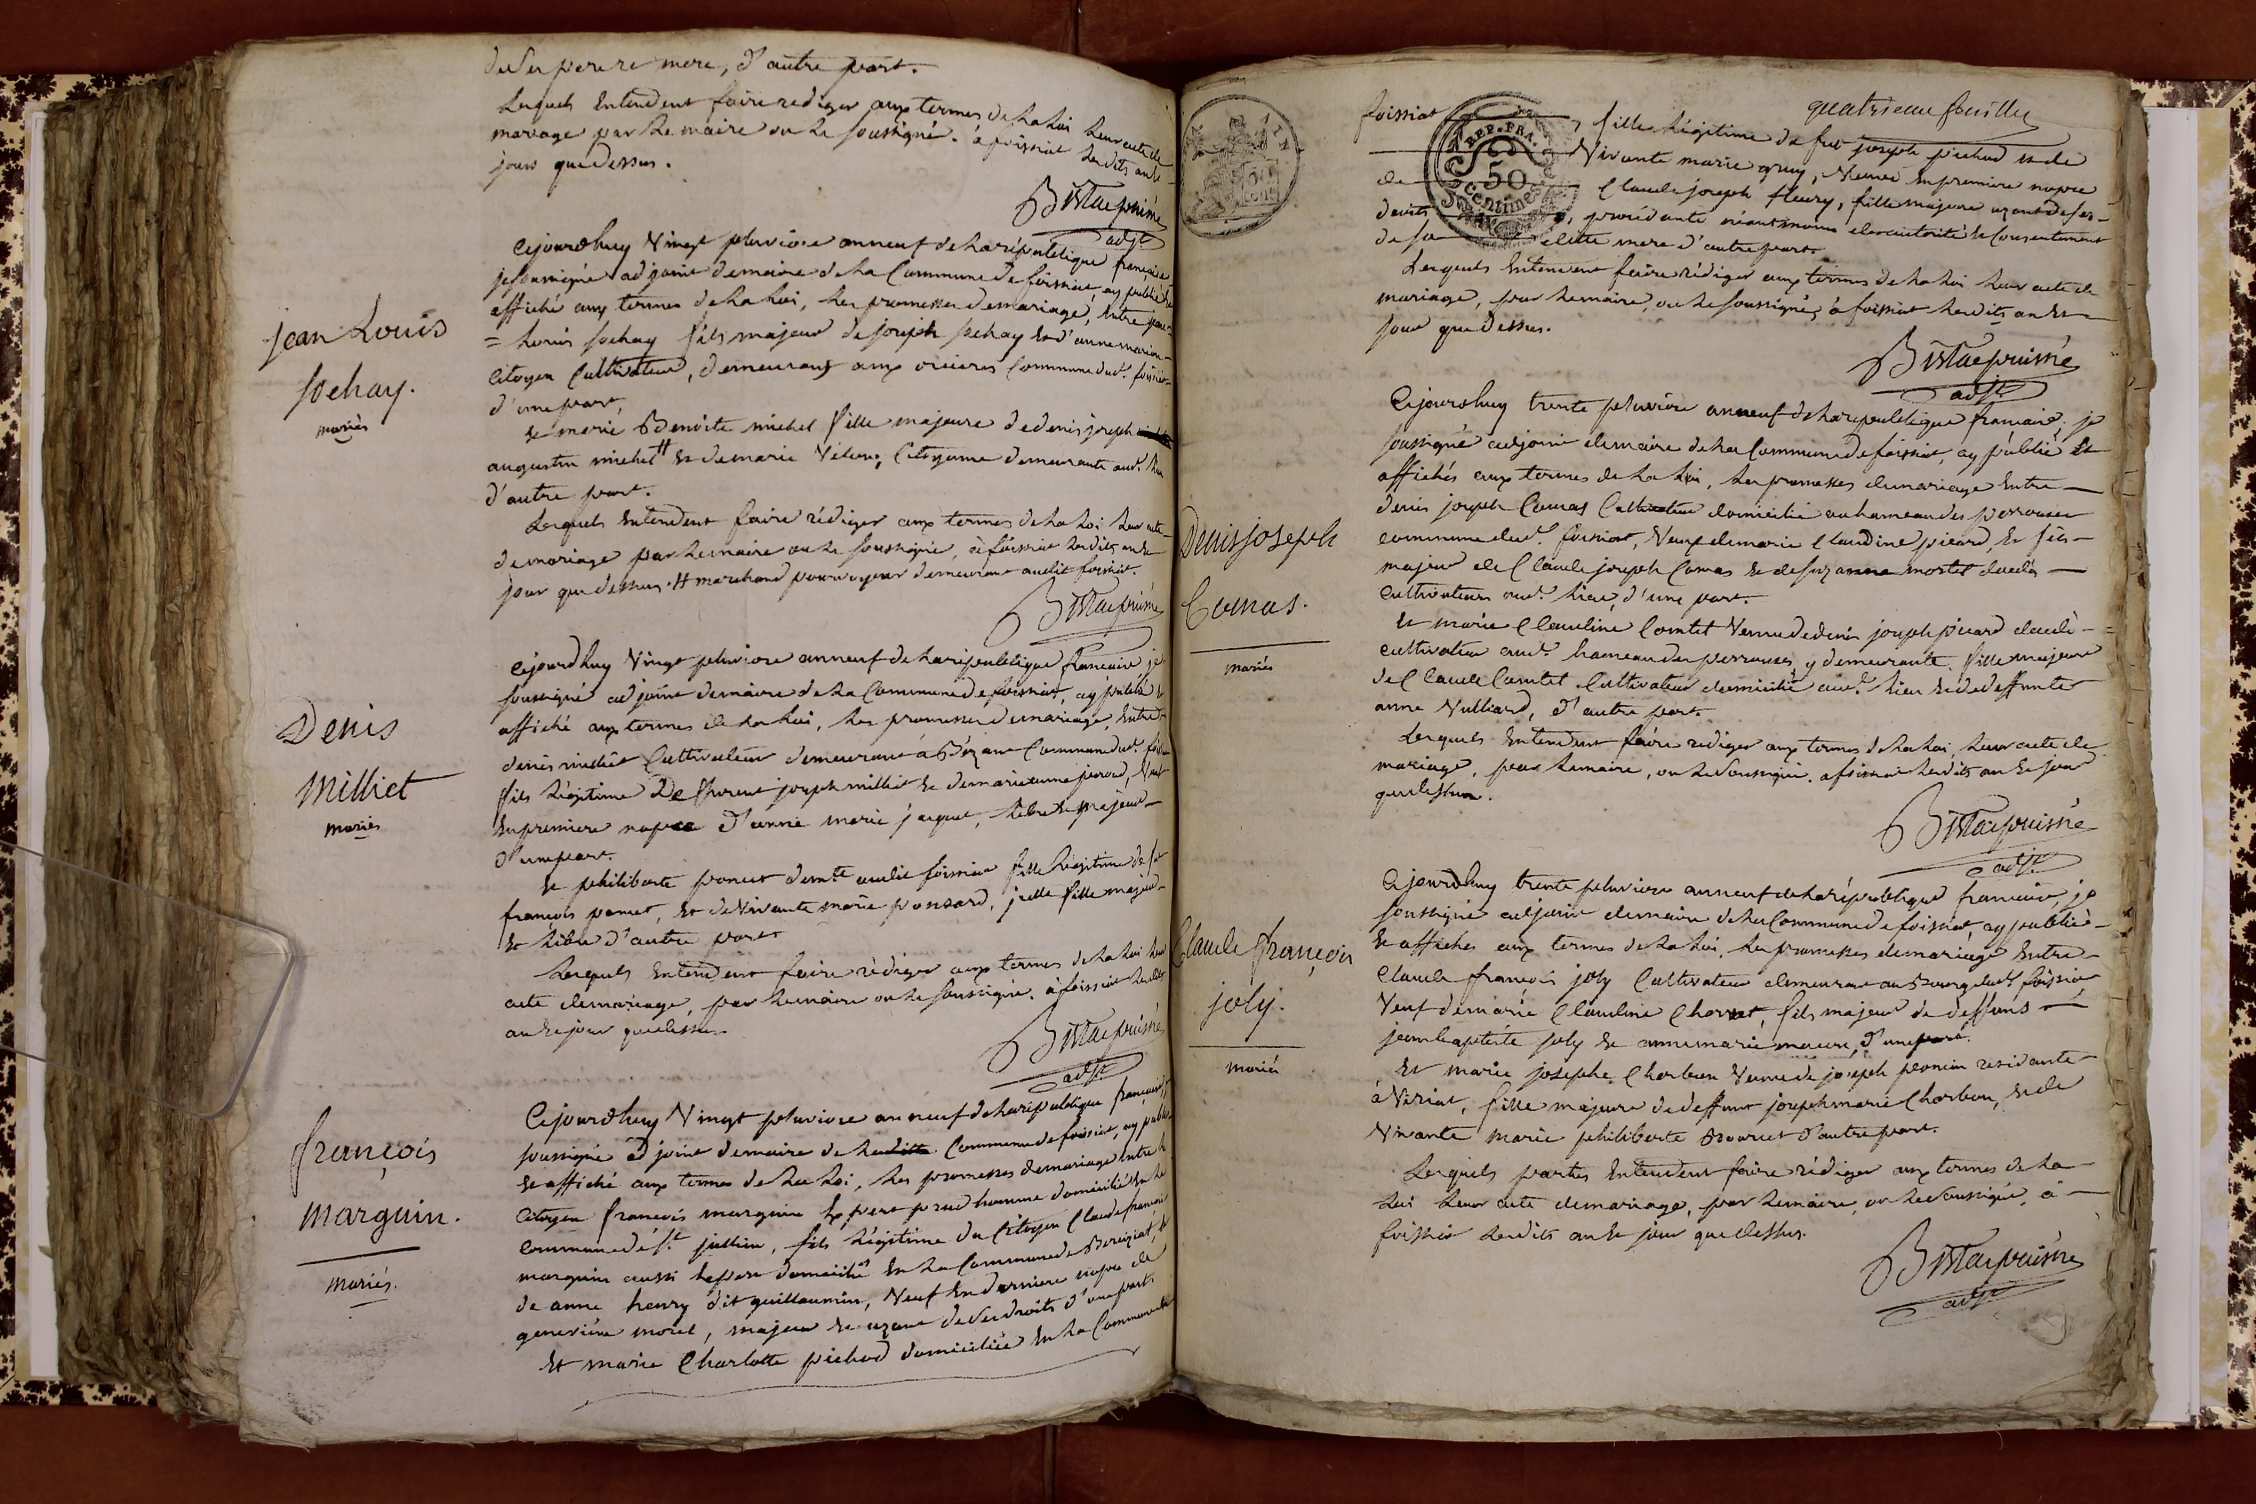 de ses pere et mere, d'autre part.
Lesquels Entendent faire rediger aux termes de la loi leur acte de
mariage par le maire ou le soussigné. à foissiat lesdits an et
jour que dessus.
Bistac puisné
adjt
Cejourdhuy Vingt pluviose an neuf de la république française
je soussigné adjoint de maire de la Commune de foissiat, ay publié et
affiché aux termes de la loi, les promesses de mariage, Entre jean
= Louis sochay fils majeur de joseph sochay et d'anne marion
Citoyen Cultivateur, demeurant aux Commune dud. foissiat
d'une part,
et marie Benoite michel fille majeure de denis joseph
augustin michel # et de marie Citoyenne demeurante aud. lieu
d'autre part.
Lesquels Entendent faire rédiger aux termes de la loi leur acte
de mariage par le maire ou le soussigné, à foissiat lesdits an et
jour que dessus. # marchand demeurant audit foissiat.
Bistac puisné
jean Louis
sochay.
mariés
Cejourdhuy Vingt pluviose an neuf de la république française je
soussigné adjoint de maire de la Commune de foissiat, ay publié et
affiché aux termes de la loi, les promesses de mariage, Entre
denis milliet Cultivateur demeurant à Bézant Commune dud. foissiat
fils légitime De florent joseph milliet et de marie anne Veuf
En premiere nopce d'anne marie jacquet, libre et majeur
d'une part.
et philiberte poncet demte audit foissiat fille légitime de feu
françois poncet, et de Vivante marie ponsard, fille majeure
et libre d'autre part
Lesquels Entendent faire rédiger aux termes de la loi leur
acte de mariage, par le maire ou le soussigné. à foissiat lesdits
an et jour que dessus.
Bistac puisné
adjt
Denis
Milliet
mariés
Cejourdhuy Vingt pluviose an neuf de la république française, je
soussigné adjoint de maire de Commune de foissiat, ay publié
et affiché aux termes de la loi, les promesses de mariage entre le
Citoyen françois marguin Expert prud'homme domicilié En la
commune de St. jullien, fils légitime du Citoyen Claude françois
marguin aussi Expert domicilié En la Commune de Béréziat, et
de anne henry dit guillaumin, Veuf En derniere nopce de
genevieve morel, majeur et uzant de ses droits d'une part.
et marie Charlotte pichod domiciliée En la Commune de
françois
Marguin.
mariés.
quatrieme feuillet
REP. FRA.
50
centimes
foissiat, fille légitime de feu joseph pichod et de
Vivante marie gruy, Veuve En premiere nopce
de Claude joseph fleury, fille majeure uzant de ses
droits, procédante néantmoins de l'autorité et Consentement
de sa ditte mere d'autre part.
Lesquels Entendent faire rédiger aux termes de la loi leur acte de
mariage, par le maire, ou le soussigné, à foissiat lesdits an et
jour que dessus.
Bistac puisné
adjt
Cejourdhuy trente pluviose an neuf de la republique française, je
soussigné adjoint de maire de la Commune de foissiat, ay publié et
affichés aux termes de la loi, les promesses de mariage Entre
denis joseph Camus Cultivateur domicilié au hameau des perrouses
commune dud. foissiat, Veuf de marie Claudine picard, et fils
majeur de Claude joseph Camus et de suzanne mortel
cultivateurs aud. lieu, d'une part.
et marie Claudine Comtet Veuve de denis joseph picard
cultivateur aud. hameau des perrouses, y demeurante, fille majeure
de Claude Comtet Cultivateur domicilié aud. lieu et de deffunte
anne Vulliard, d'autre part.
Lesquels Entendent faire rediger aux termes de la loi, leur acte de
mariage, par le maire, ou le soussigné. a foissiat lesdits an et jour
que dessus.
Bistac puisné
adjt
Denis joseph
Camus.
mariés
Cejourdhuy trente pluviose an neuf de la république française, je
soussigné adjoint de maire de la Commune de foissiat, ay publié
et affichés aux termes de la loi, les promesses de mariage Entre
Claude françois joly Cultivateur demeurant au Bourg dud. foissiat
Veuf de marie Claudine Charvet, fils majeur de deffunts
jean baptiste joly et anne marie d'une part.
et marie josephe Charbon Veuve de joseph residante
à Viriat, fille majeure de deffunt joseph marie Charbon, et de
Vivante marie philiberte d'autre part.
Lesquels parties Entendent faire rédiger aux termes de la
loi leur acte de mariage, par le maire, ou le soussigné, à
foissiat lesdits an et jour que dessus.
Bistac puisné
adjt
Claude françois
joly.
mariés